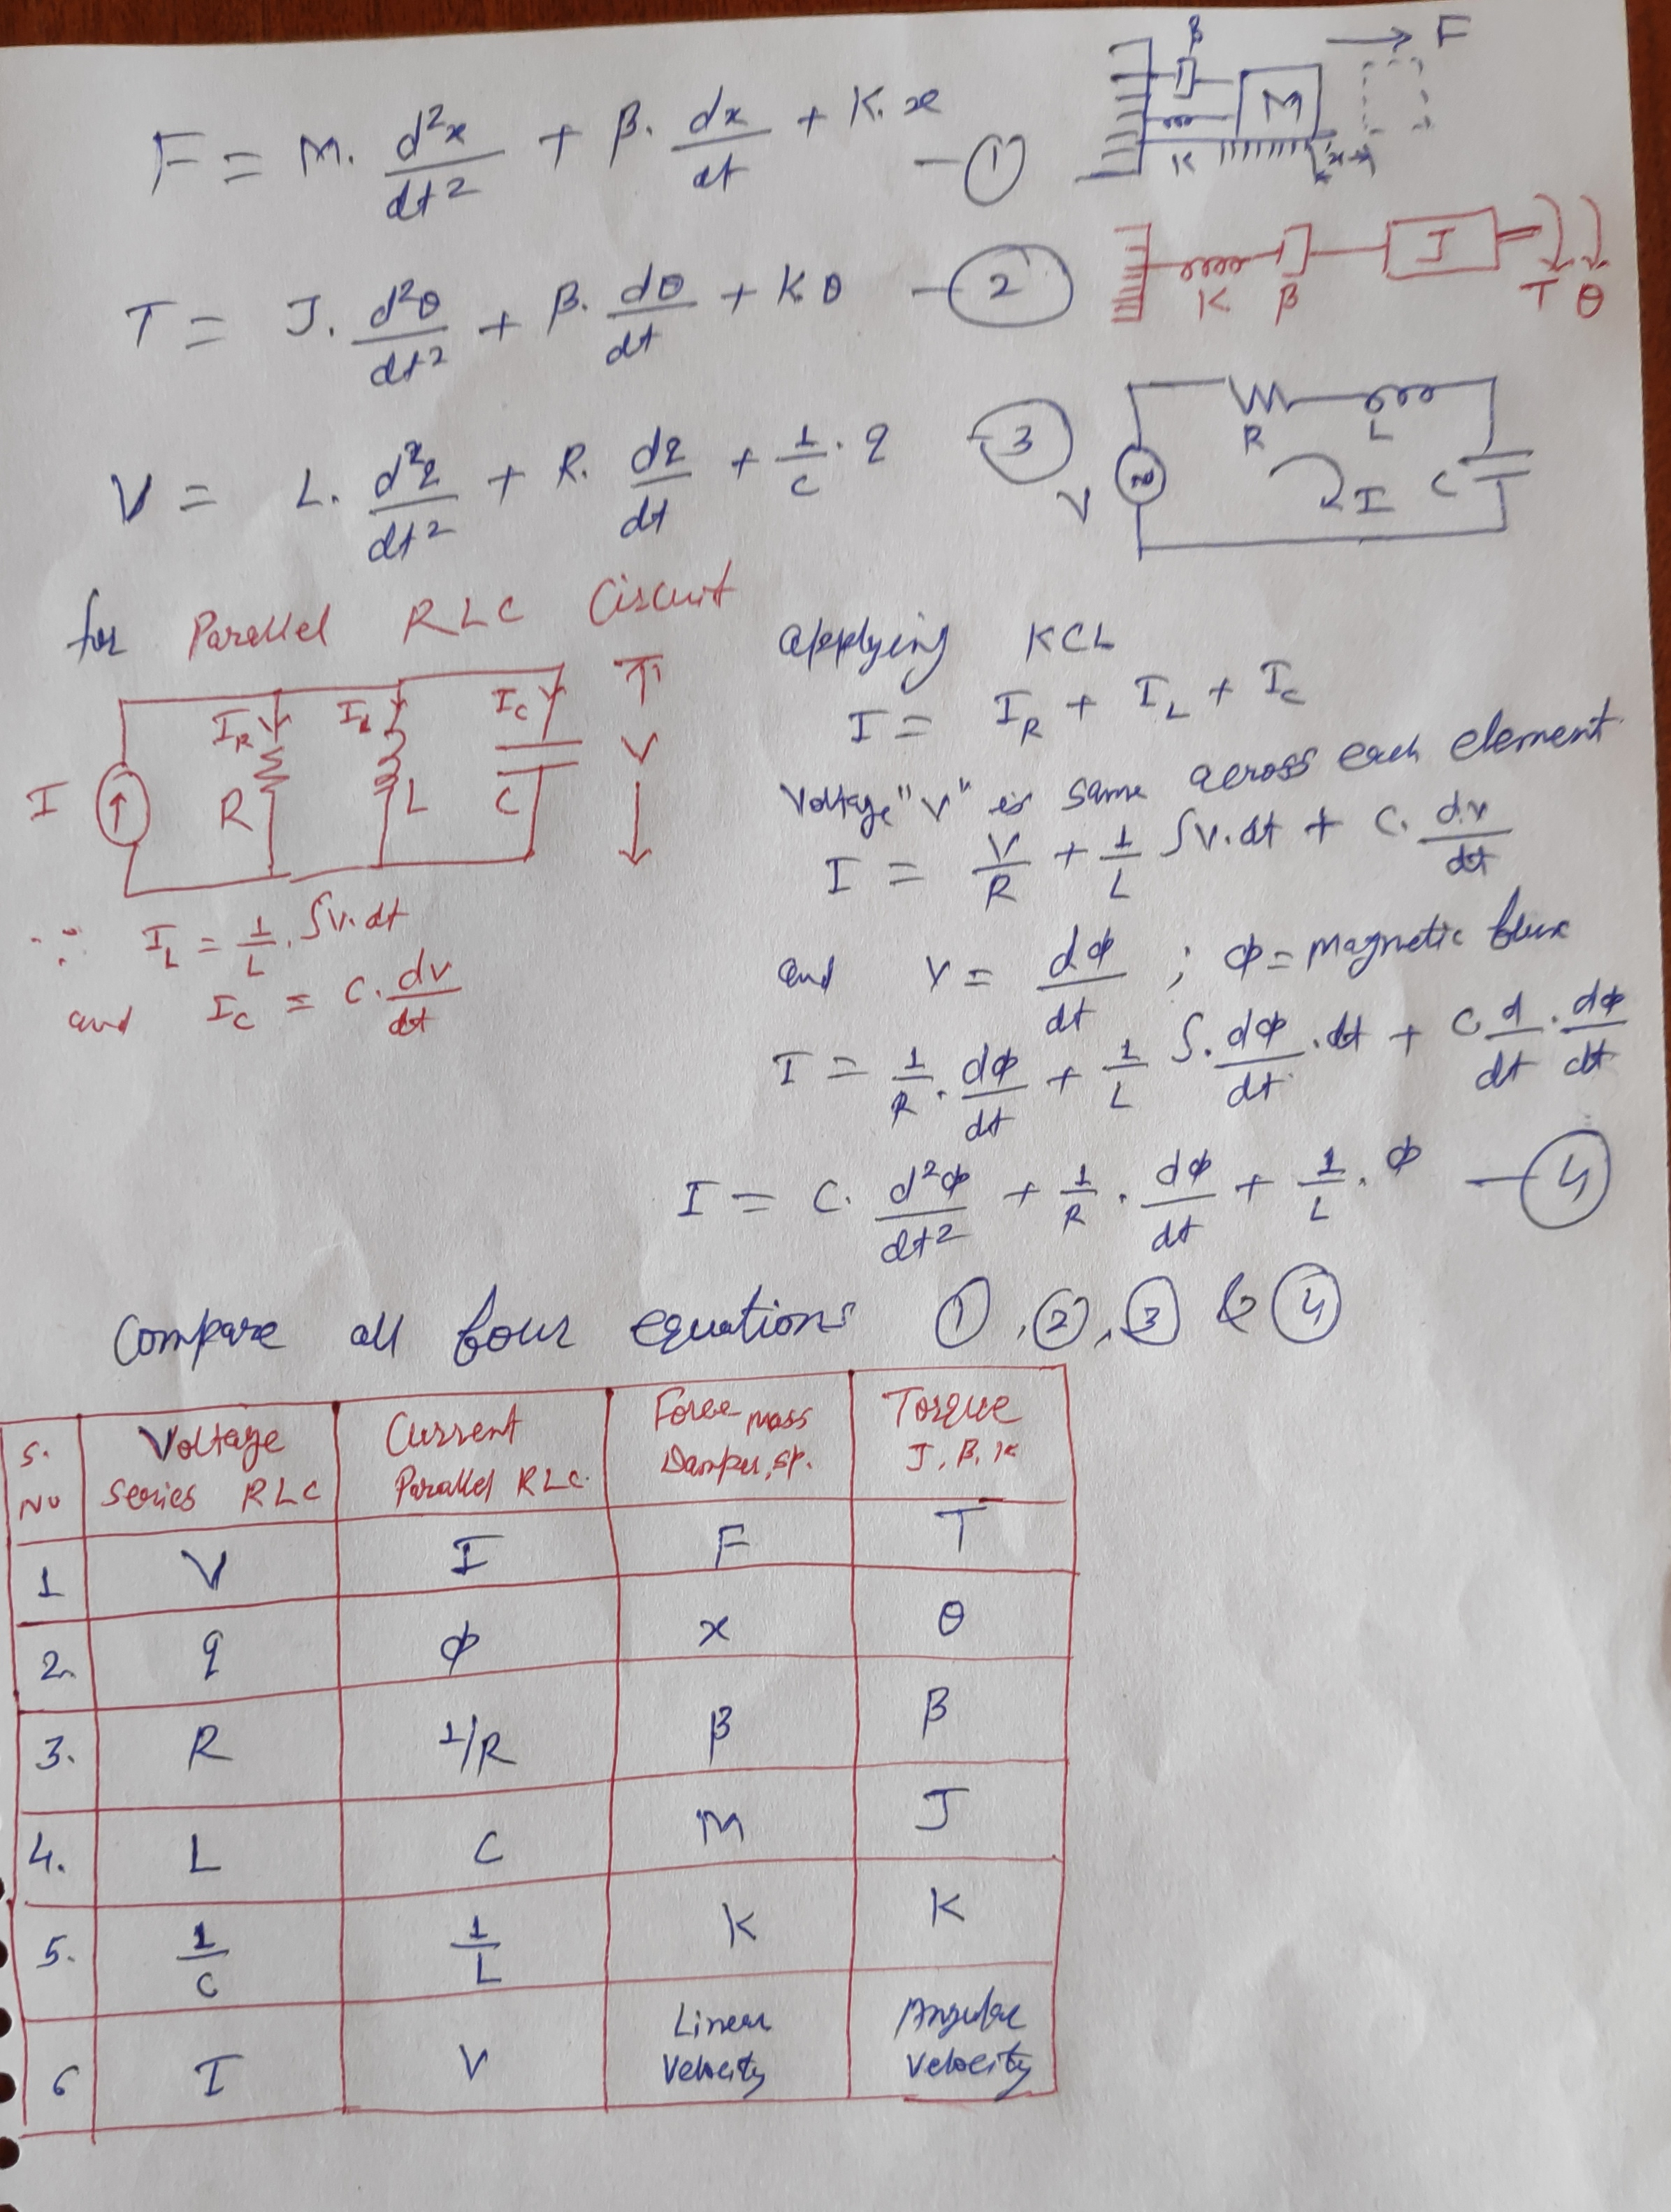 F = M. d²x/dt² + β. dx/dt + K. x — ①
β
F
M
K
x
T = J. d²θ/dt² + β. dθ/dt + Kθ — ②
K β J T θ
V = L. d²q/dt² + R. dq/dt + 1/C . q — ③
R L
V I C
for Parallel RLC Circuit
I I_R R I_L L I_C C V
∵ I_L = 1/L . ∫v. dt
and I_C = C. dv/dt
applying KCL
I = I_R + I_L + I_C
Voltage "V" is same across each element
I = V/R + 1/L ∫v. dt + C. dv/dt
and V = dϕ/dt ; ϕ = magnetic flux
I = 1/R . dϕ/dt + 1/L ∫. dϕ/dt . dt + C. d/dt . dϕ/dt
I = C. d²ϕ/dt² + 1/R . dϕ/dt + 1/L . ϕ — ④
Compare all four equations ①, ②, ③ & ④
S. No Voltage Series RLC Current Parallel RLC. Force mass Damper, sp. Torque J, B, K
1 V I F T
2. q ϕ x θ
3. R 1/R β β
4. L C M J
5. 1/C 1/L K K
6 I V Linear Velocity Angular Velocity